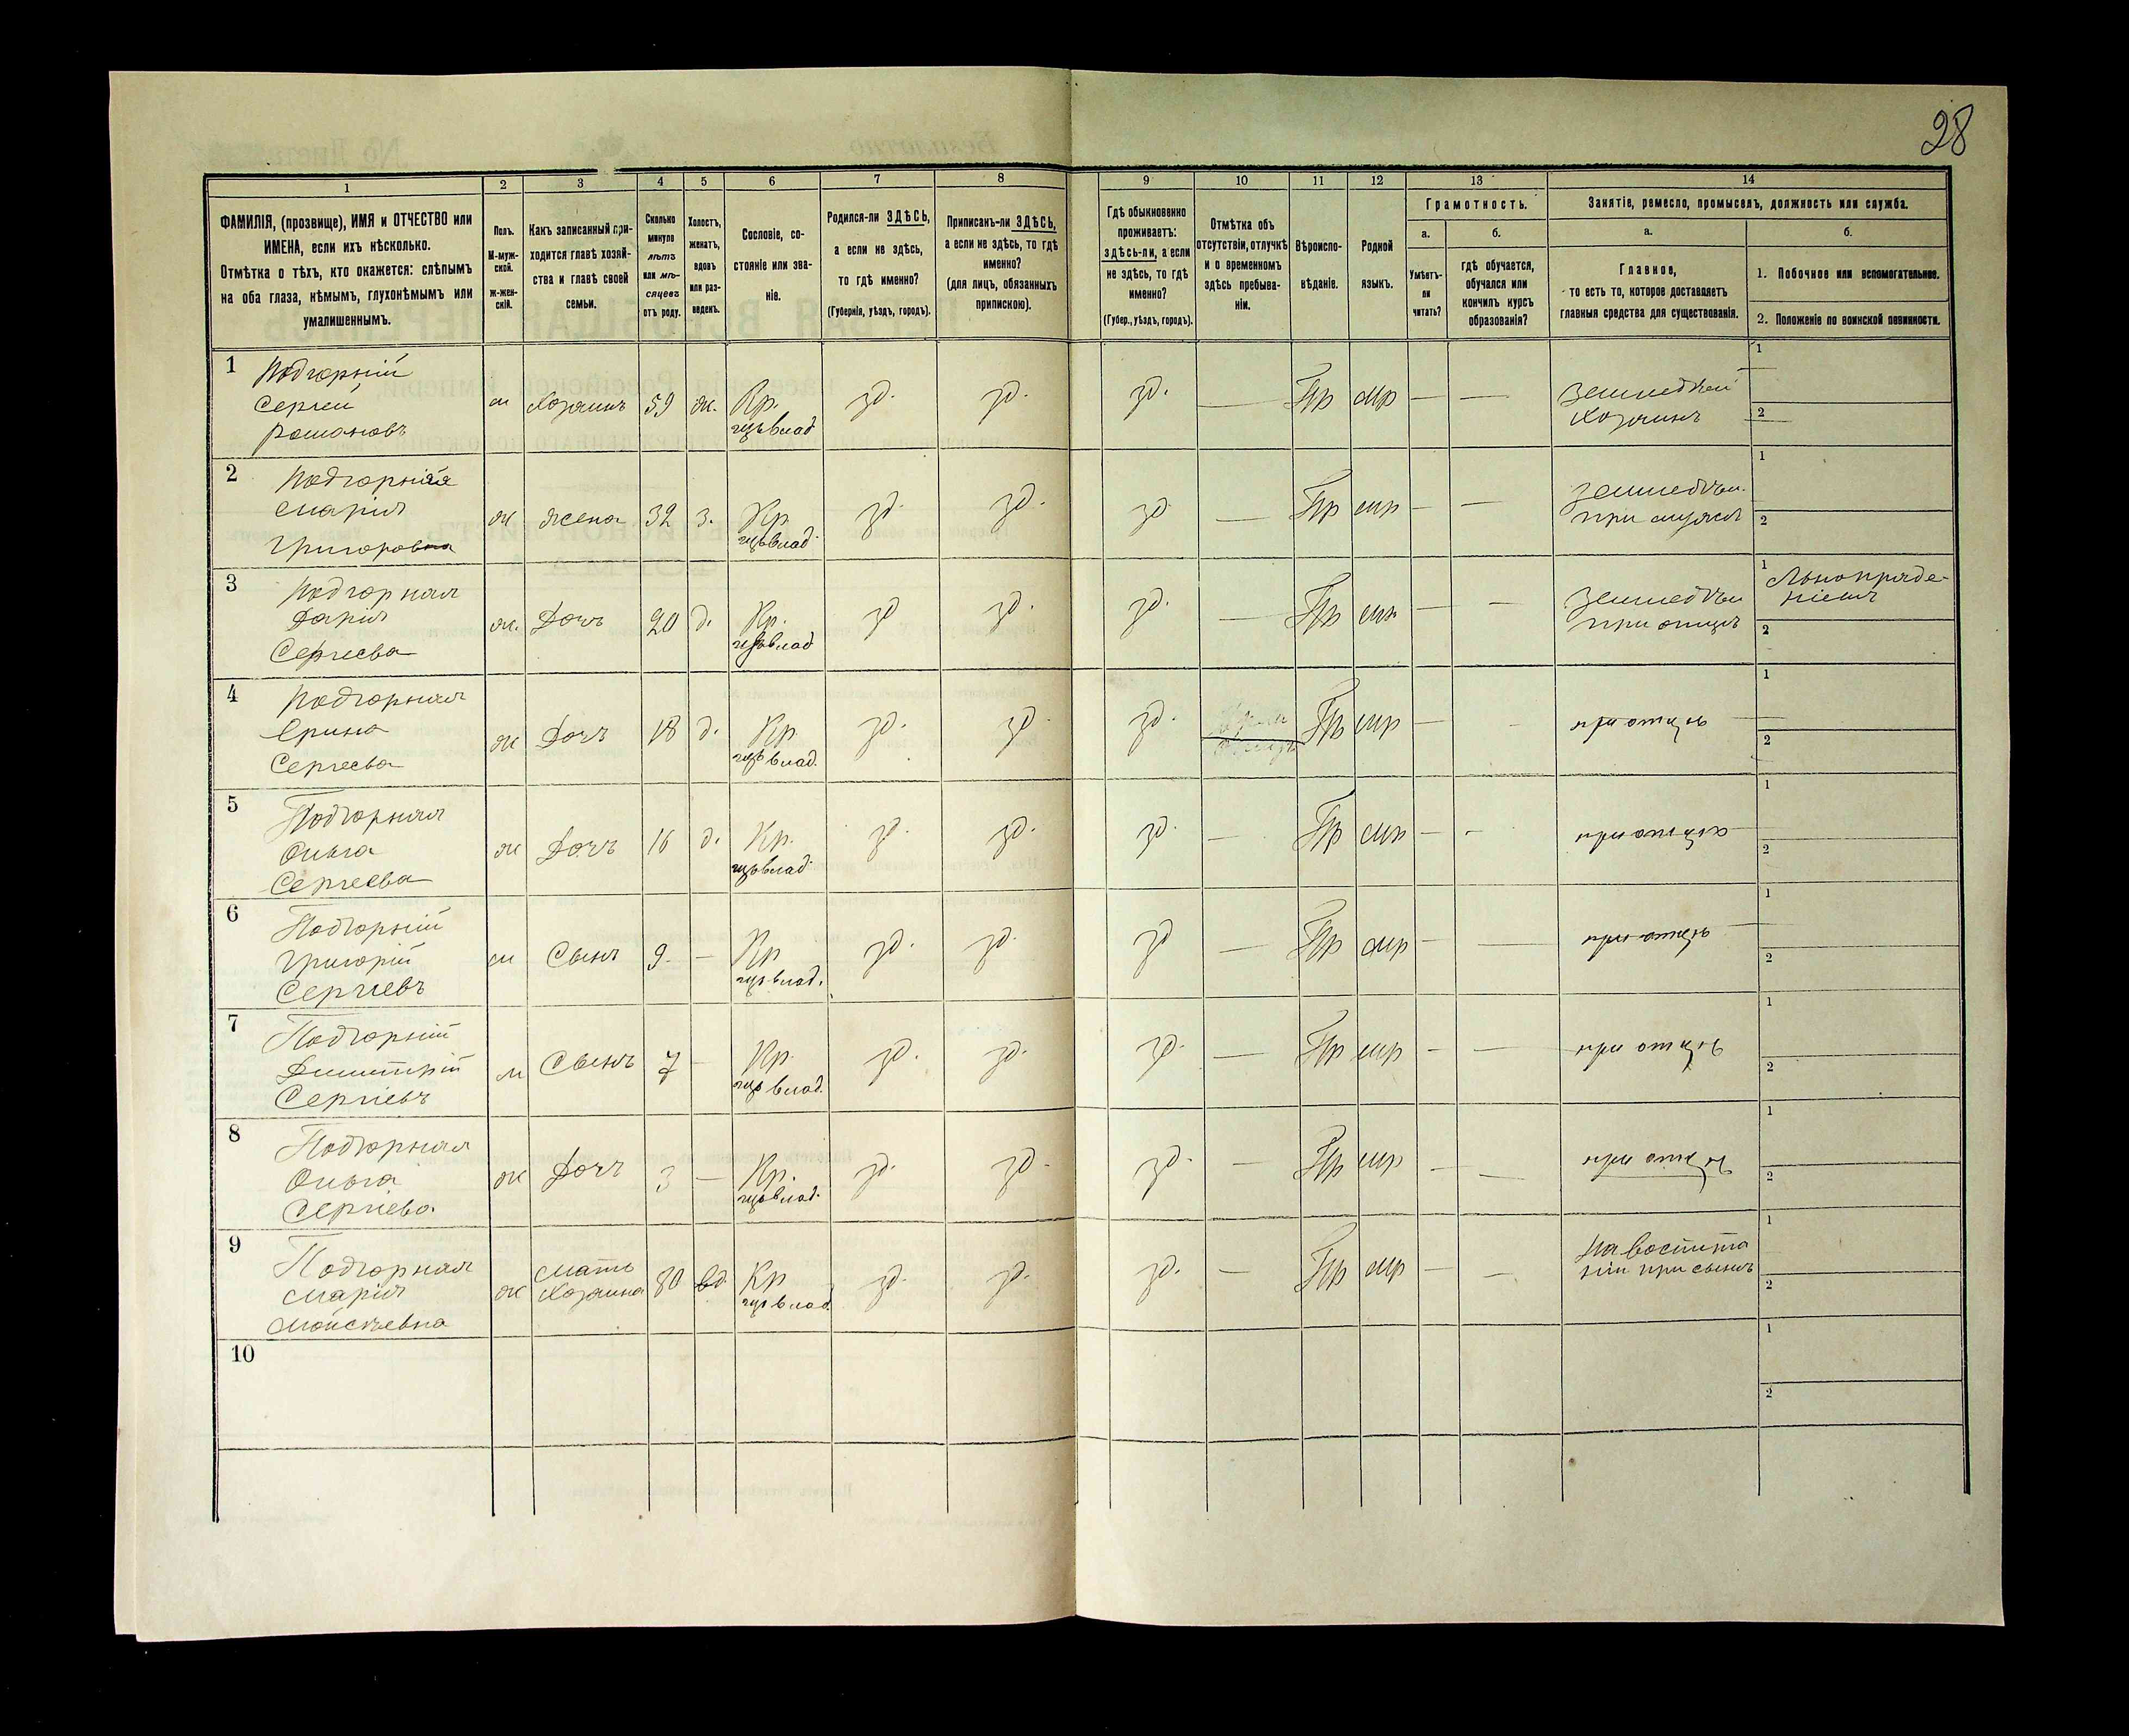 28
1 2 3 4 5 6 7 8 9 10 11 12 13 14
ФАМИЛІЯ, (прозвище), ИМЯ и ОТЧЕСТВО или
ИМЕНА, если ихъ нѣсколько.
Отмѣтка о тѣхъ, кто окажется: слѣпымъ
на оба глаза, нѣмымъ, глухонѣмымъ или
умалишеннымъ.
Полъ.
М-муж-
ской.
Ж-жен-
скій.
Какъ записанный при-
ходится главѣ хозяй-
ства и главѣ своей
семьи.
Сколько
минуло
лѣтъ
или мѣ-
сяцевъ
отъ роду.
Холостъ,
женатъ,
вдовъ
или раз-
веденъ.
Сословіе, со-
стояніе или зва-
ніе.
Родился-ли ЗДѢСЬ,
а если не здѣсь,
то гдѣ именно?
(Губернія, уѣздъ, городъ).
Приписанъ-ли ЗДѢСЬ,
а если не здѣсь, то гдѣ
именно?
(для лицъ, обязанныхъ
припискою).
Гдѣ обыкновенно
проживаетъ:
здѣсь-ли, а если
не здѣсь, то гдѣ
именно?
(Губер., уѣздъ, городъ).
Отмѣтка объ
отсутствіи, отлучкѣ
и о временномъ
здѣсь пребыва-
ніи.
Вѣроиспо-
вѣданіе.
Родной
языкъ.
Грамотность.
а.
Умѣетъ-
ли
читать?
б.
гдѣ обучается,
обучался или
кончилъ курсъ
образованія?
Занятіе, ремесло, промыселъ, должность или служба.
а.
Главное,
то есть то, которое доставляетъ
главныя средства для существованія.
б.
1. Побочное или вспомогательное.
2. Положеніе по воинской повинности.
1 Подгорній
Сергей
Романовъ
м Хозяинъ 59 ж. Кр. зд. зд. зд. — Пр мр — —
Хозяинъ
1
2
2 Подгорная
Марія
Григоровна
ж жена 32 з. Кр зд. зд. зд — Пр мр — —
при мужѣ
1
2
3 Подгорная
Дарія
Сергеева
ж. Дочь 20 д. Кр. зд зд. зд. — Пр мр — —
при отцѣ
1 Льнопряде-
ніемъ
2
4 Подгорная
Ірина
Сергеева
ж Дочь 18 д. Кр зд. зд зд. Пр мр — - при отцѣ
1
2
5 Подгорная
Ольга
Сергеева
ж Дочь 16 д. Кр. зд. зд. зд. — Пр мр — - при отцѣ
1
2
6 Подгорній
Григорій
Сергіевъ
м Сынъ 9. — Кр зд. зд. зд — Пр мр - — при отцѣ
1
2
7 Подгорній
Димитрій
Сергіевъ
м Сынъ 7 — Кр. зд. зд. зд. — Пр мр - — при отцѣ
1
2
8 Подгорная
Ольга
Сергіева
ж Дочь 3 — Кр. зд. зд. зд. — Пр мр - — при отцѣ
1
2
9 Подгорная
Марія
Моисѣевна
ж Мать
Хозяина 80 вд. Кр зд. зд. зд. — Пр мр — —
На воспита
ніи при сынѣ
1
2
10
1
2